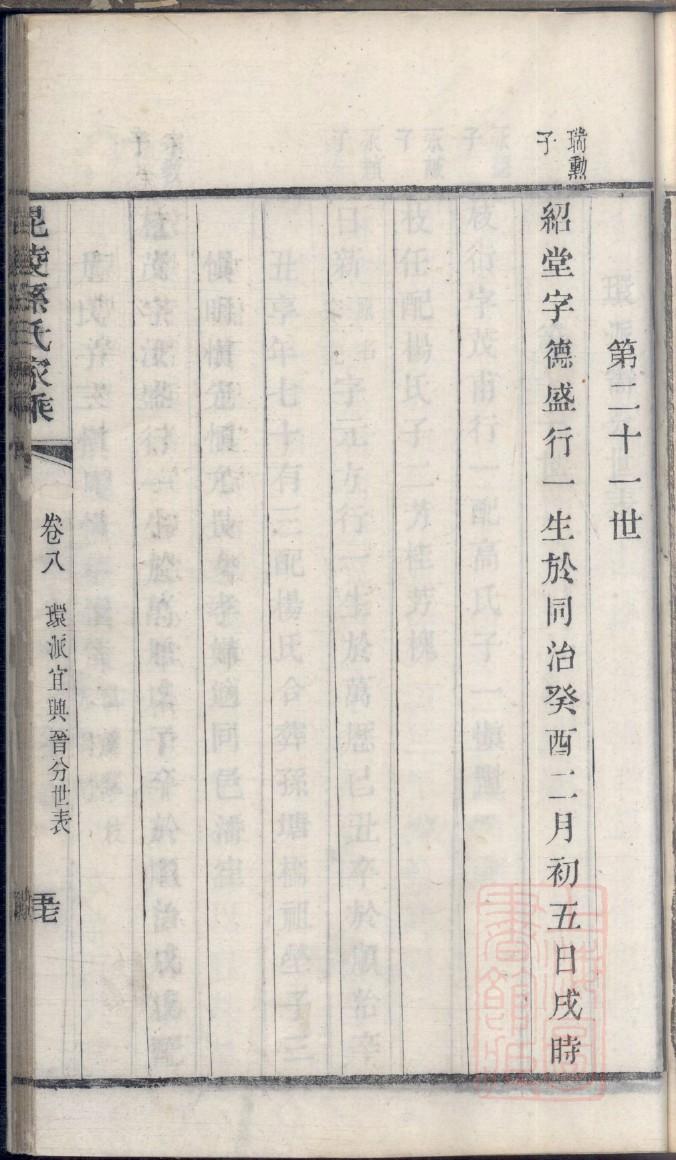 第二十一世
瑞勳
子
紹堂字德盛行一生於同治癸酉二月初五日戌時
毘陵孫氏家乘
卷八
環派宜興晉分世表